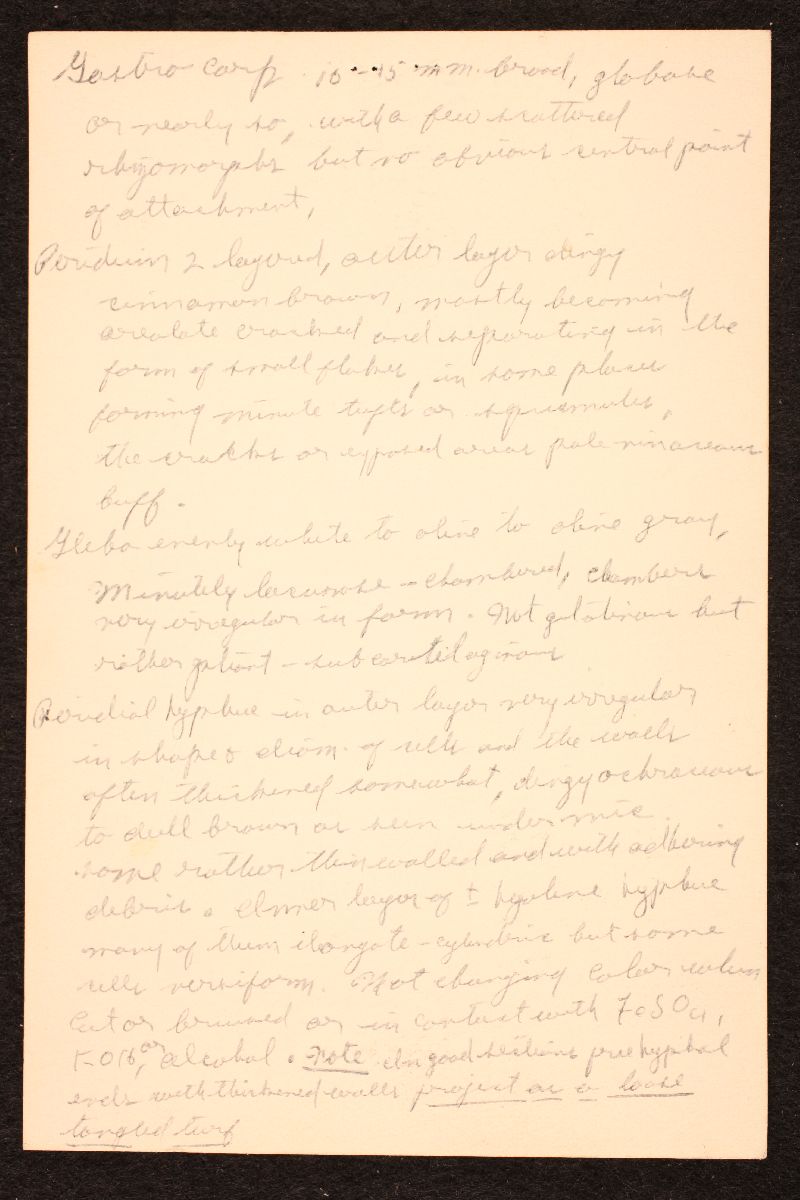 Gastro carp 10-15 mm. broad, globose
or nearly so, with a few scattered
rhizomorphs but no obvious central point
of attachment,
Peridium 2 layered, outer layer dingy
cinnamon brown, mostly becoming
areolate cracked and separating in the
form of small flakes, in some places
forming minute tufts or squamules,
the cracks or exposed areas pale vinaceous
buff.
Gleba evenly white to olive to olive gray,
Minutely lacunose-chambered, chambers
very irregular in form. Not gelatinous but
rather pliant - subcartilaginous
Peridial hyphae in outer layer very irregular
in shape & diam. of cells and the walls
often thickened somewhat, dingy ochraceous
to dull brown as seen under mic.
some rather thin walled and with adhering
debris. Inner layer of ± hyaline hyphae
many of them elongate-cylindric but some
cells versiform. Not changing color when
cut or bruised or in contact with FeSO4,
KOH, or alcohol. Note In good sections free hyphal
ends with thickened walls project as a loose
tangled turf